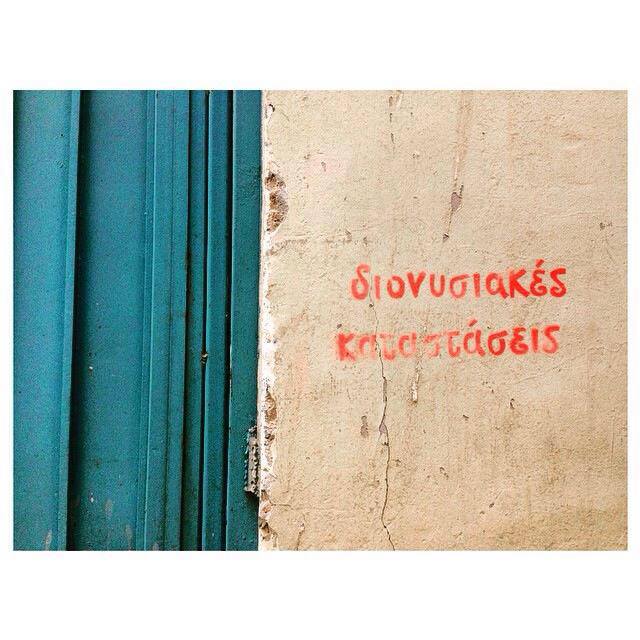 διονυσιακές
καταστάσεις